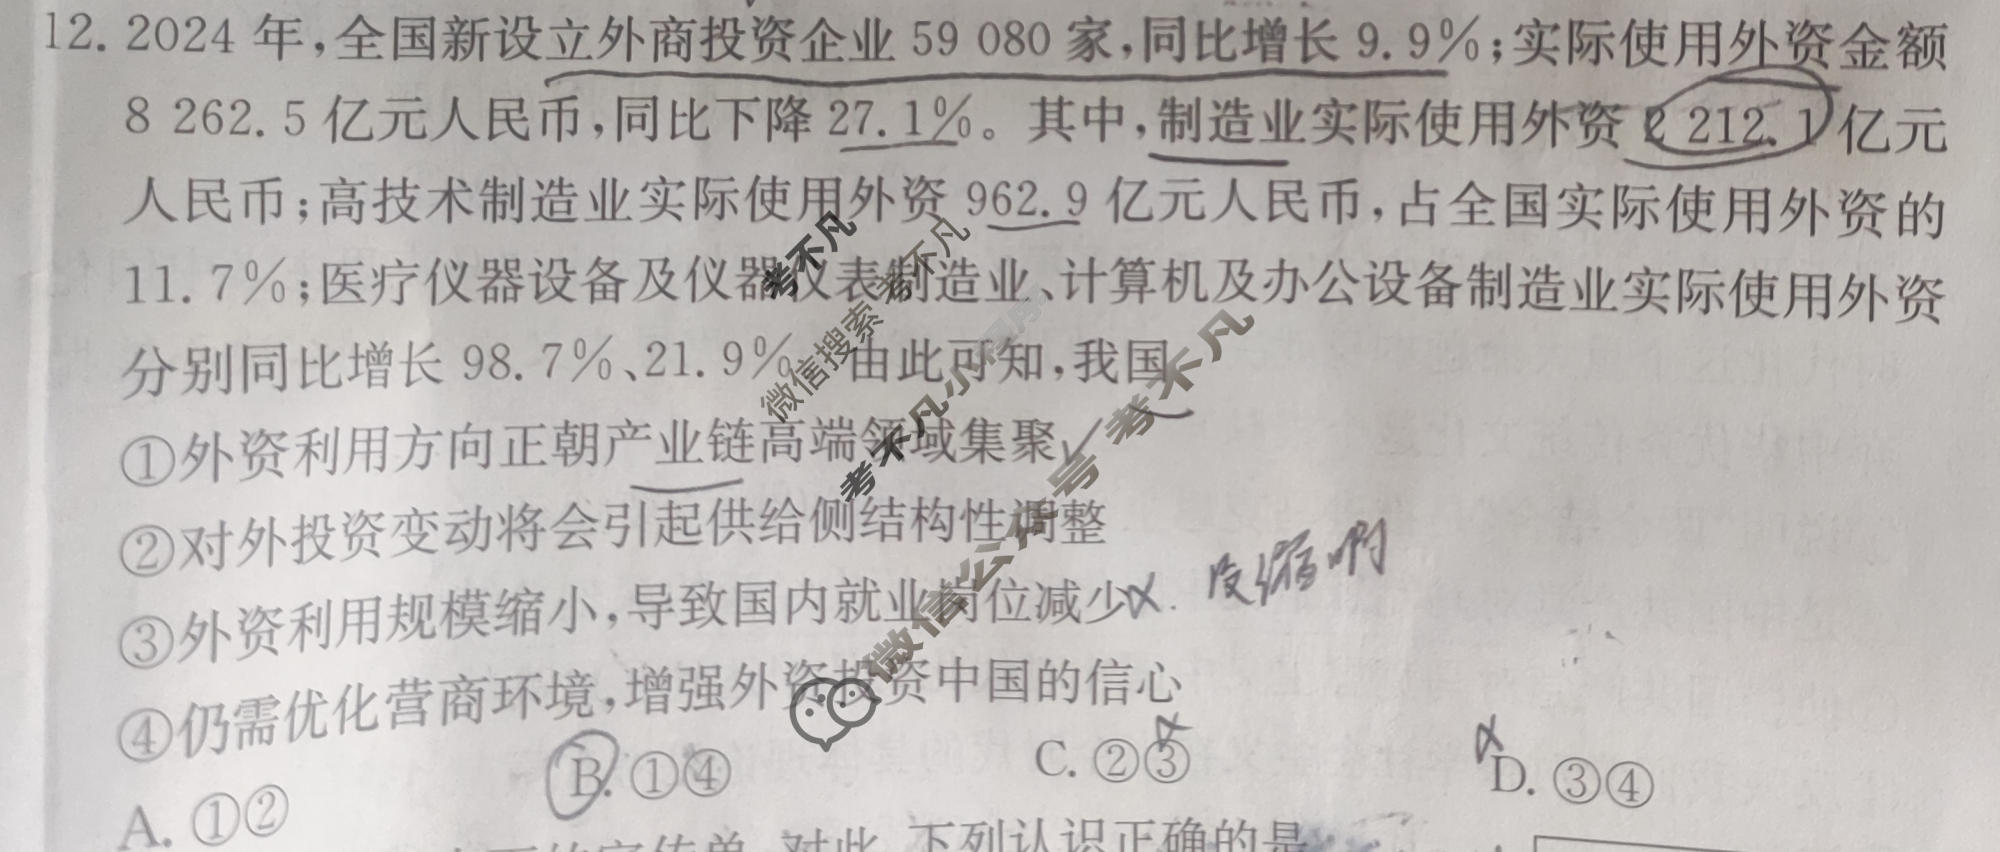 12. 2024 年，全国新设立外商投资企业 59 080 家，同比增长 9.9%；实际使用外资金额
8 262.5 亿元人民币，同比下降 27.1%。其中，制造业实际使用外资 2 212.1 亿元
人民币；高技术制造业实际使用外资 962.9 亿元人民币，占全国实际使用外资的
11.7%；医疗仪器设备及仪器仪表制造业、计算机及办公设备制造业实际使用外资
分别同比增长 98.7%、21.9%。由此可知，我国
①外资利用方向正朝产业链高端领域集聚
②对外投资变动将会引起供给侧结构性调整
③外资利用规模缩小，导致国内就业岗位减少
④仍需优化营商环境，增强外资投资中国的信心
A. ①② B. ①④ C. ②③ D. ③④
对此，下列认识正确的是
考不凡
微信搜索 考不凡
考不凡小程序
微信公众号 考不凡